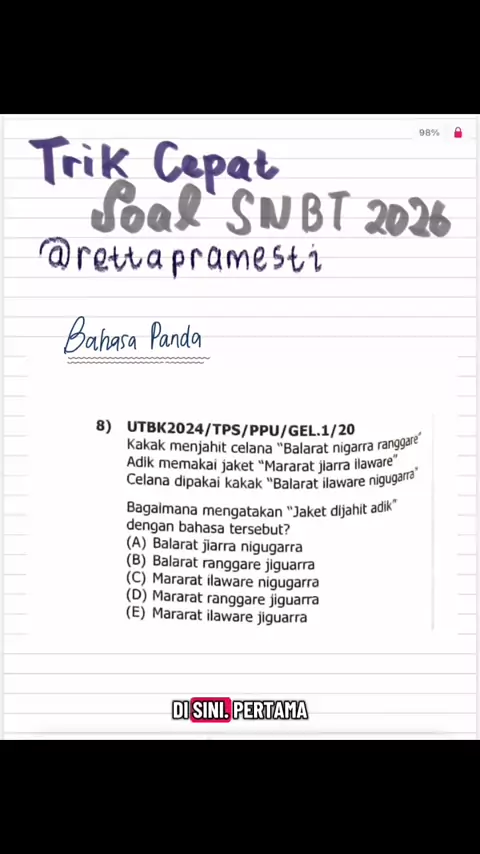 98%
Trik Cepat
Soal SNBT 2026
@rettapramesti
Bahasa Panda
8) UTBK2024/TPS/PPU/GEL.1/20
Kakak menjahit celana "Balarat nigarra ranggare"
Adik memakai jaket "Mararat jiarra ilaware"
Celana dipakai kakak "Balarat ilaware nigugarra"
Bagaimana mengatakan "Jaket dijahit adik"
dengan bahasa tersebut?
(A) Balarat jiarra nigugarra
(B) Balarat ranggare jiguarra
(C) Mararat ilaware nigugarra
(D) Mararat ranggare jiguarra
(E) Mararat ilaware jiguarra
DI SINI. PERTAMA